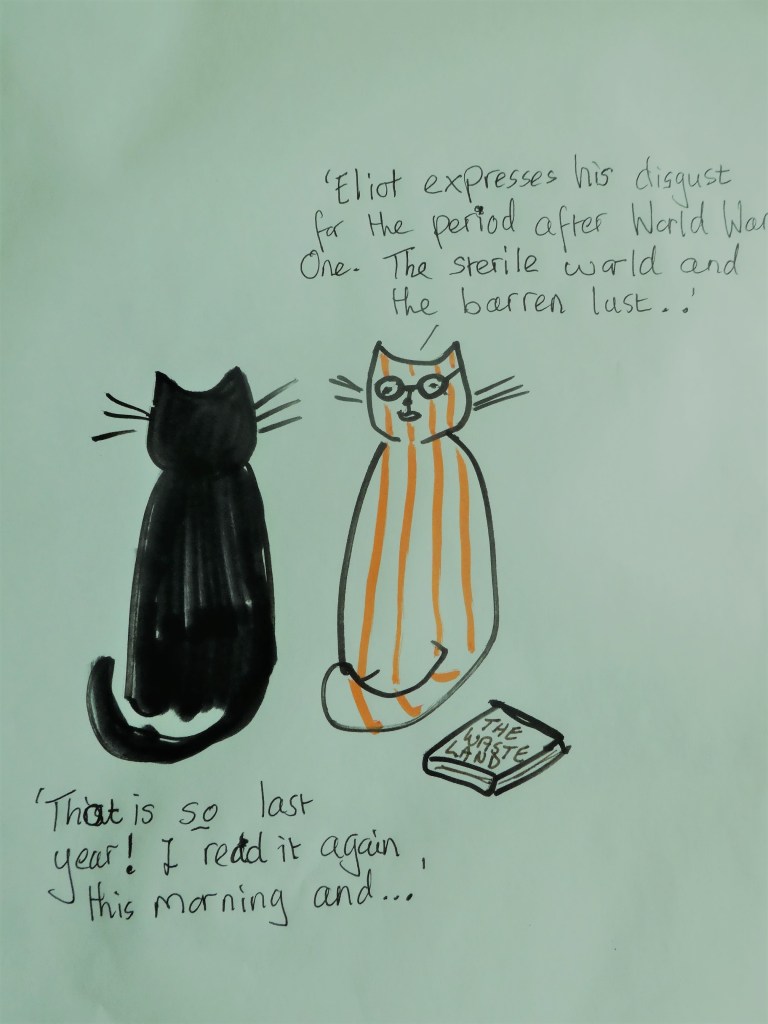 'Eliot expresses his disgust
for the period after World War
One. The sterile world and
the barren lust...'
THE
WASTE
LAND
'That is so last
year! I read it again
this morning and...'